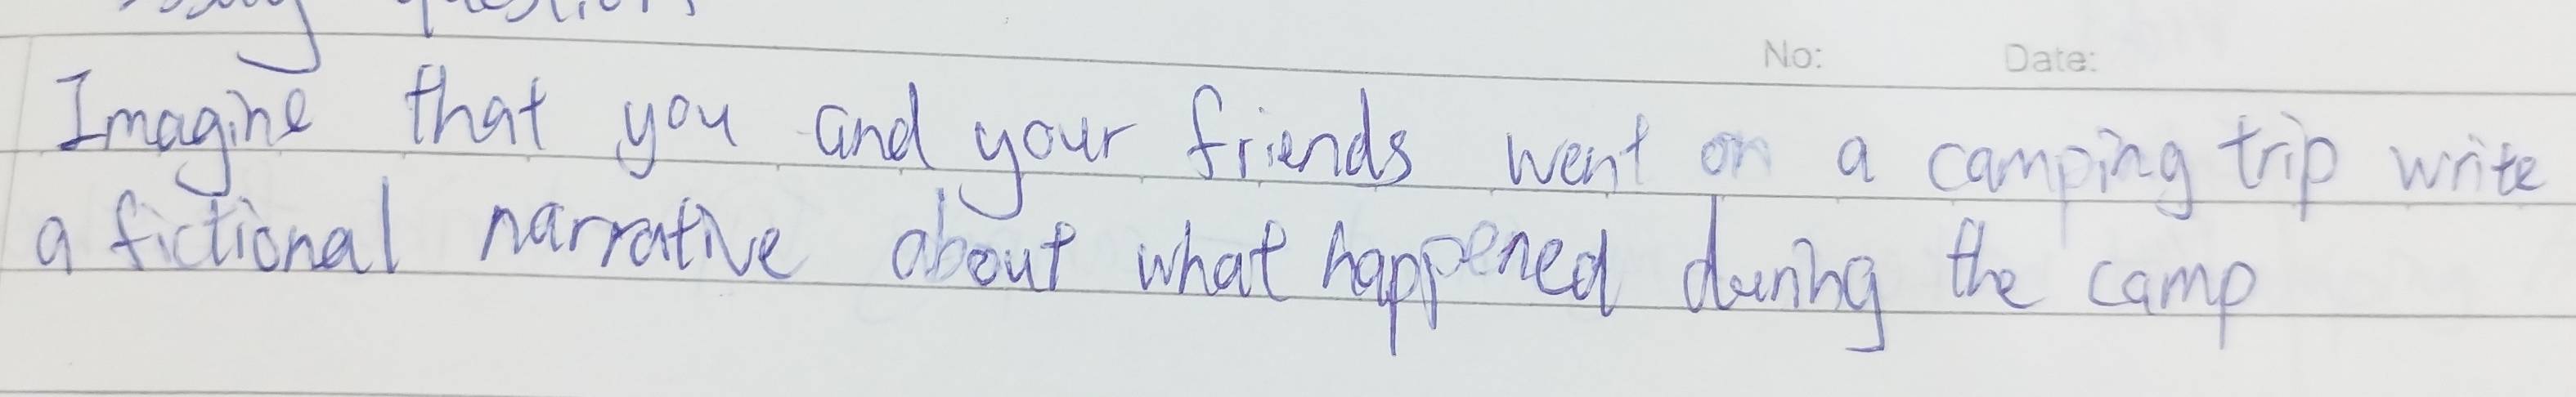 essay questions
No: Date:
Imagine that you and your friends went on a camping trip write
a fictional narrative about what happened during the camp